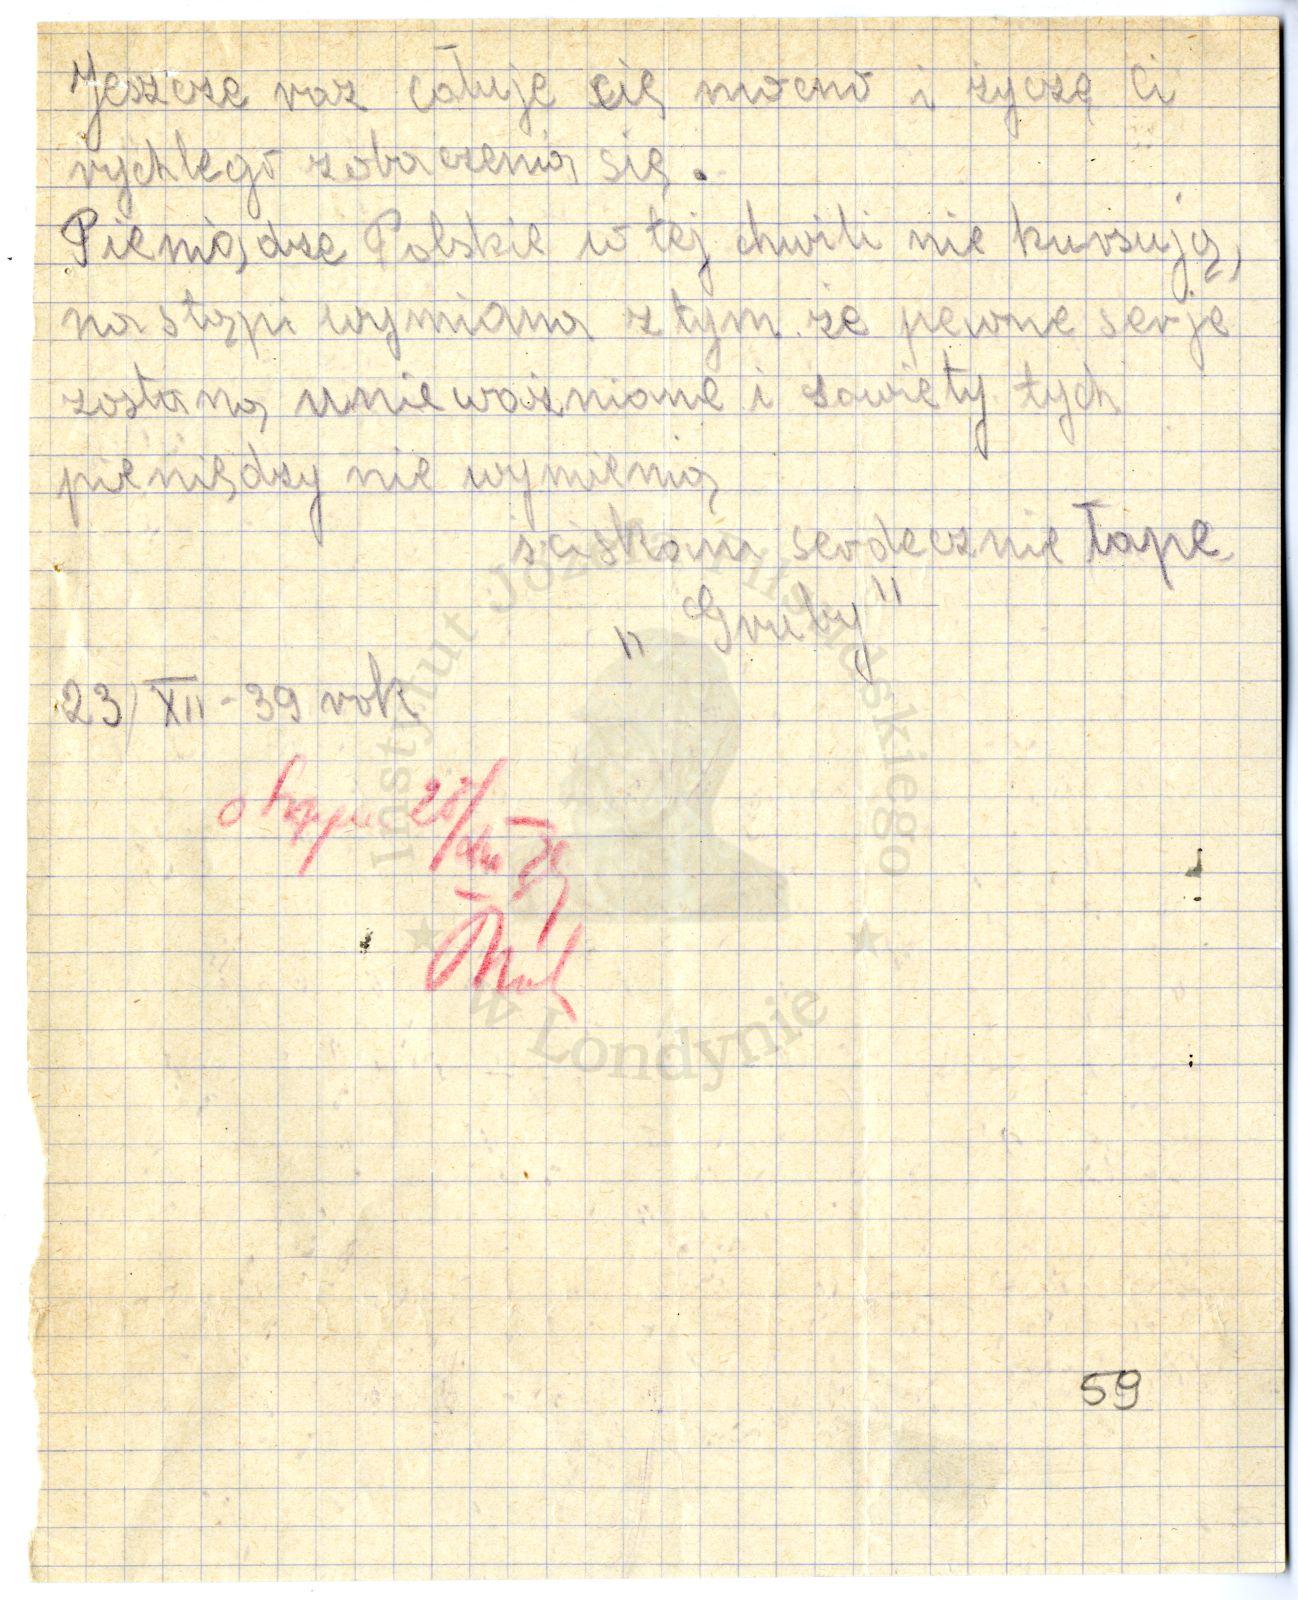 Jeszcze raz całuję cię mocno i życzę Ci
rychlego zobaczenia się.
Pieniądze Polskie w tej chwili nie kursują,
nastąpi wymiana z tym że pewne serje
zostaną unieważnione i sowiety tych
pieniędzy nie wymienią
ściskam serdecznie łapę
„Gruby"
23/XII-39 rok
59
Instytut Józefa Piłsudskiego
w Londynie